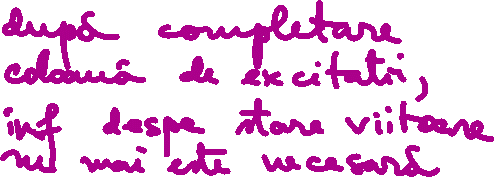 după completare
coloană de excitații,
inf despe stare viitoare
nu mai este necesară